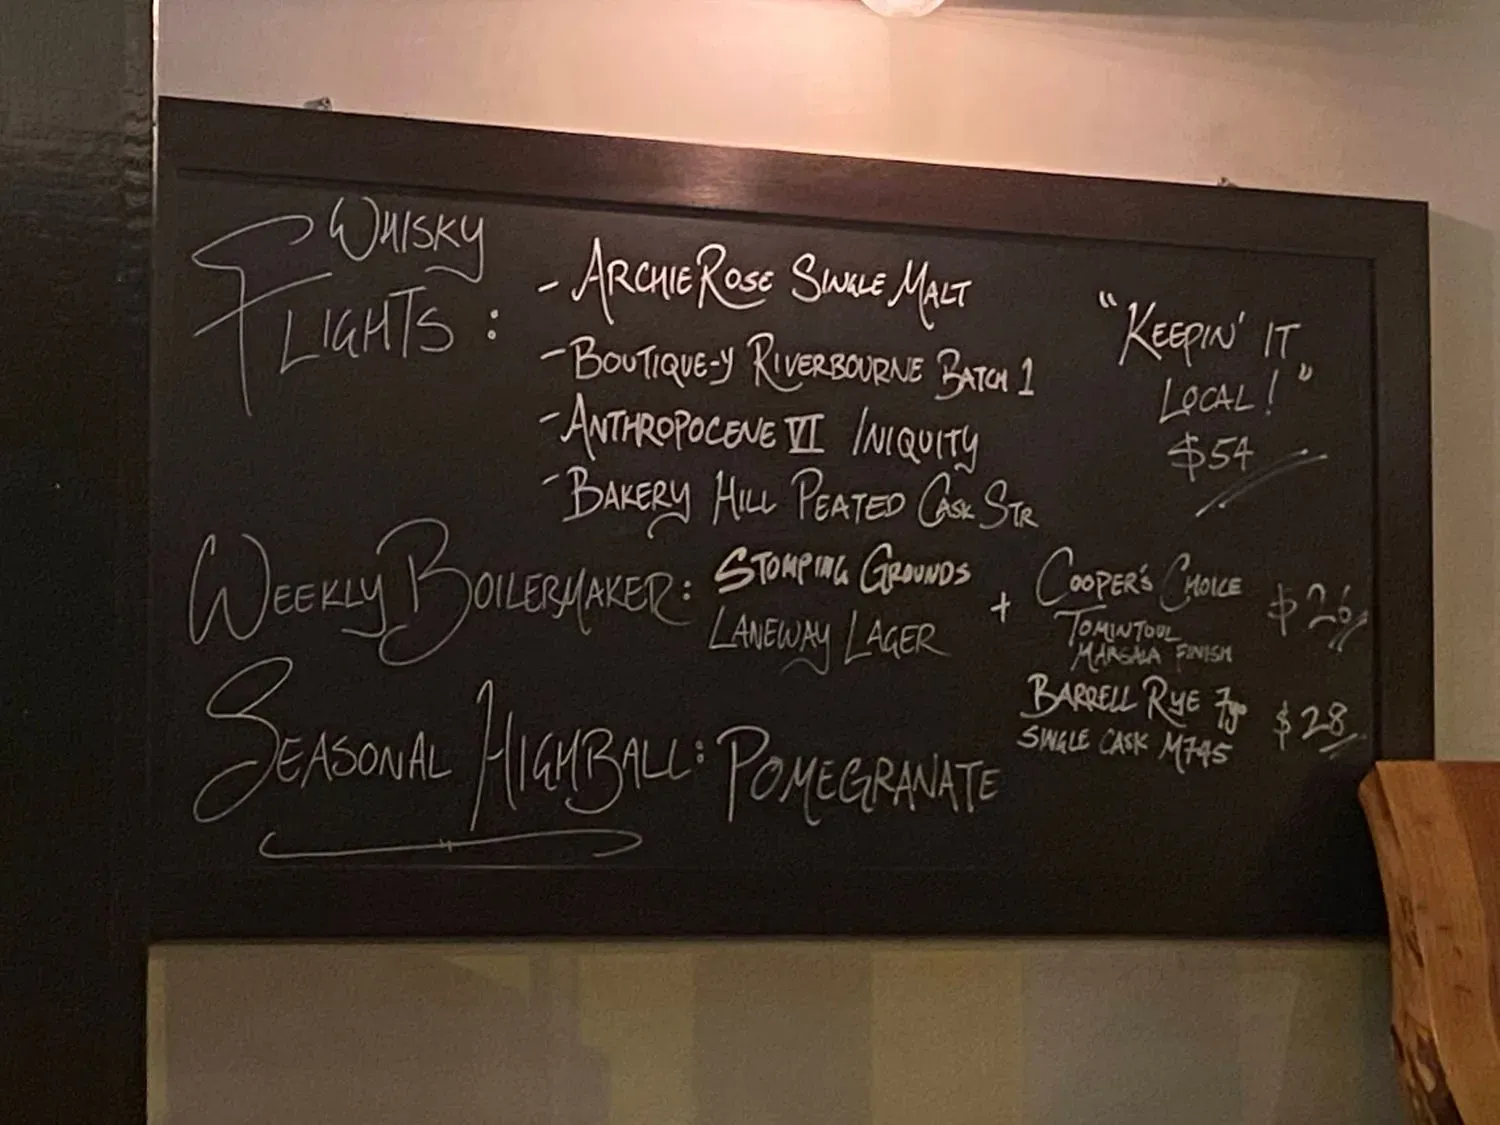 WHISKY
FLIGHTS:
- ARCHIE ROSE SINGLE MALT
- BOUTIQUE-Y RIVERBOURNE BATCH 1
- ANTHROPOCENE VI INIQUITY
- BAKERY HILL PEATED CASK STR
"KEEPIN' IT
LOCAL!"
$54
WEEKLY BOILERMAKER:
STOMPING GROUNDS
LANEWAY LAGER
+
COOPER'S CHOICE
TOMINTOUL
MARSALA FINISH
$26
BARRELL RYE 7yo
SINGLE CASK M795
$28
SEASONAL HIGHBALL: POMEGRANATE